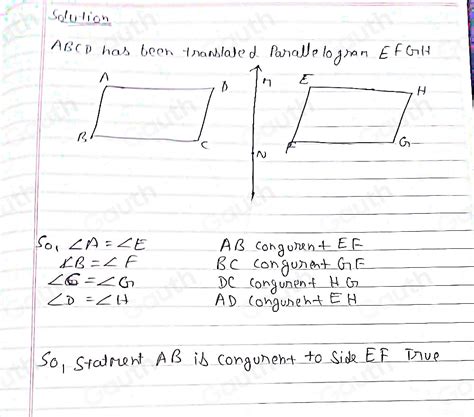 Solution
ABCD has been translated Parallelogram EFGH
A D M E H
B C N F G
So, ∠A = ∠E AB congurent EF
∠B = ∠F BC congurent GF
∠C = ∠G DC congurent HG
∠D = ∠H AD congurent EH
So, Statment AB is congurent to side EF True